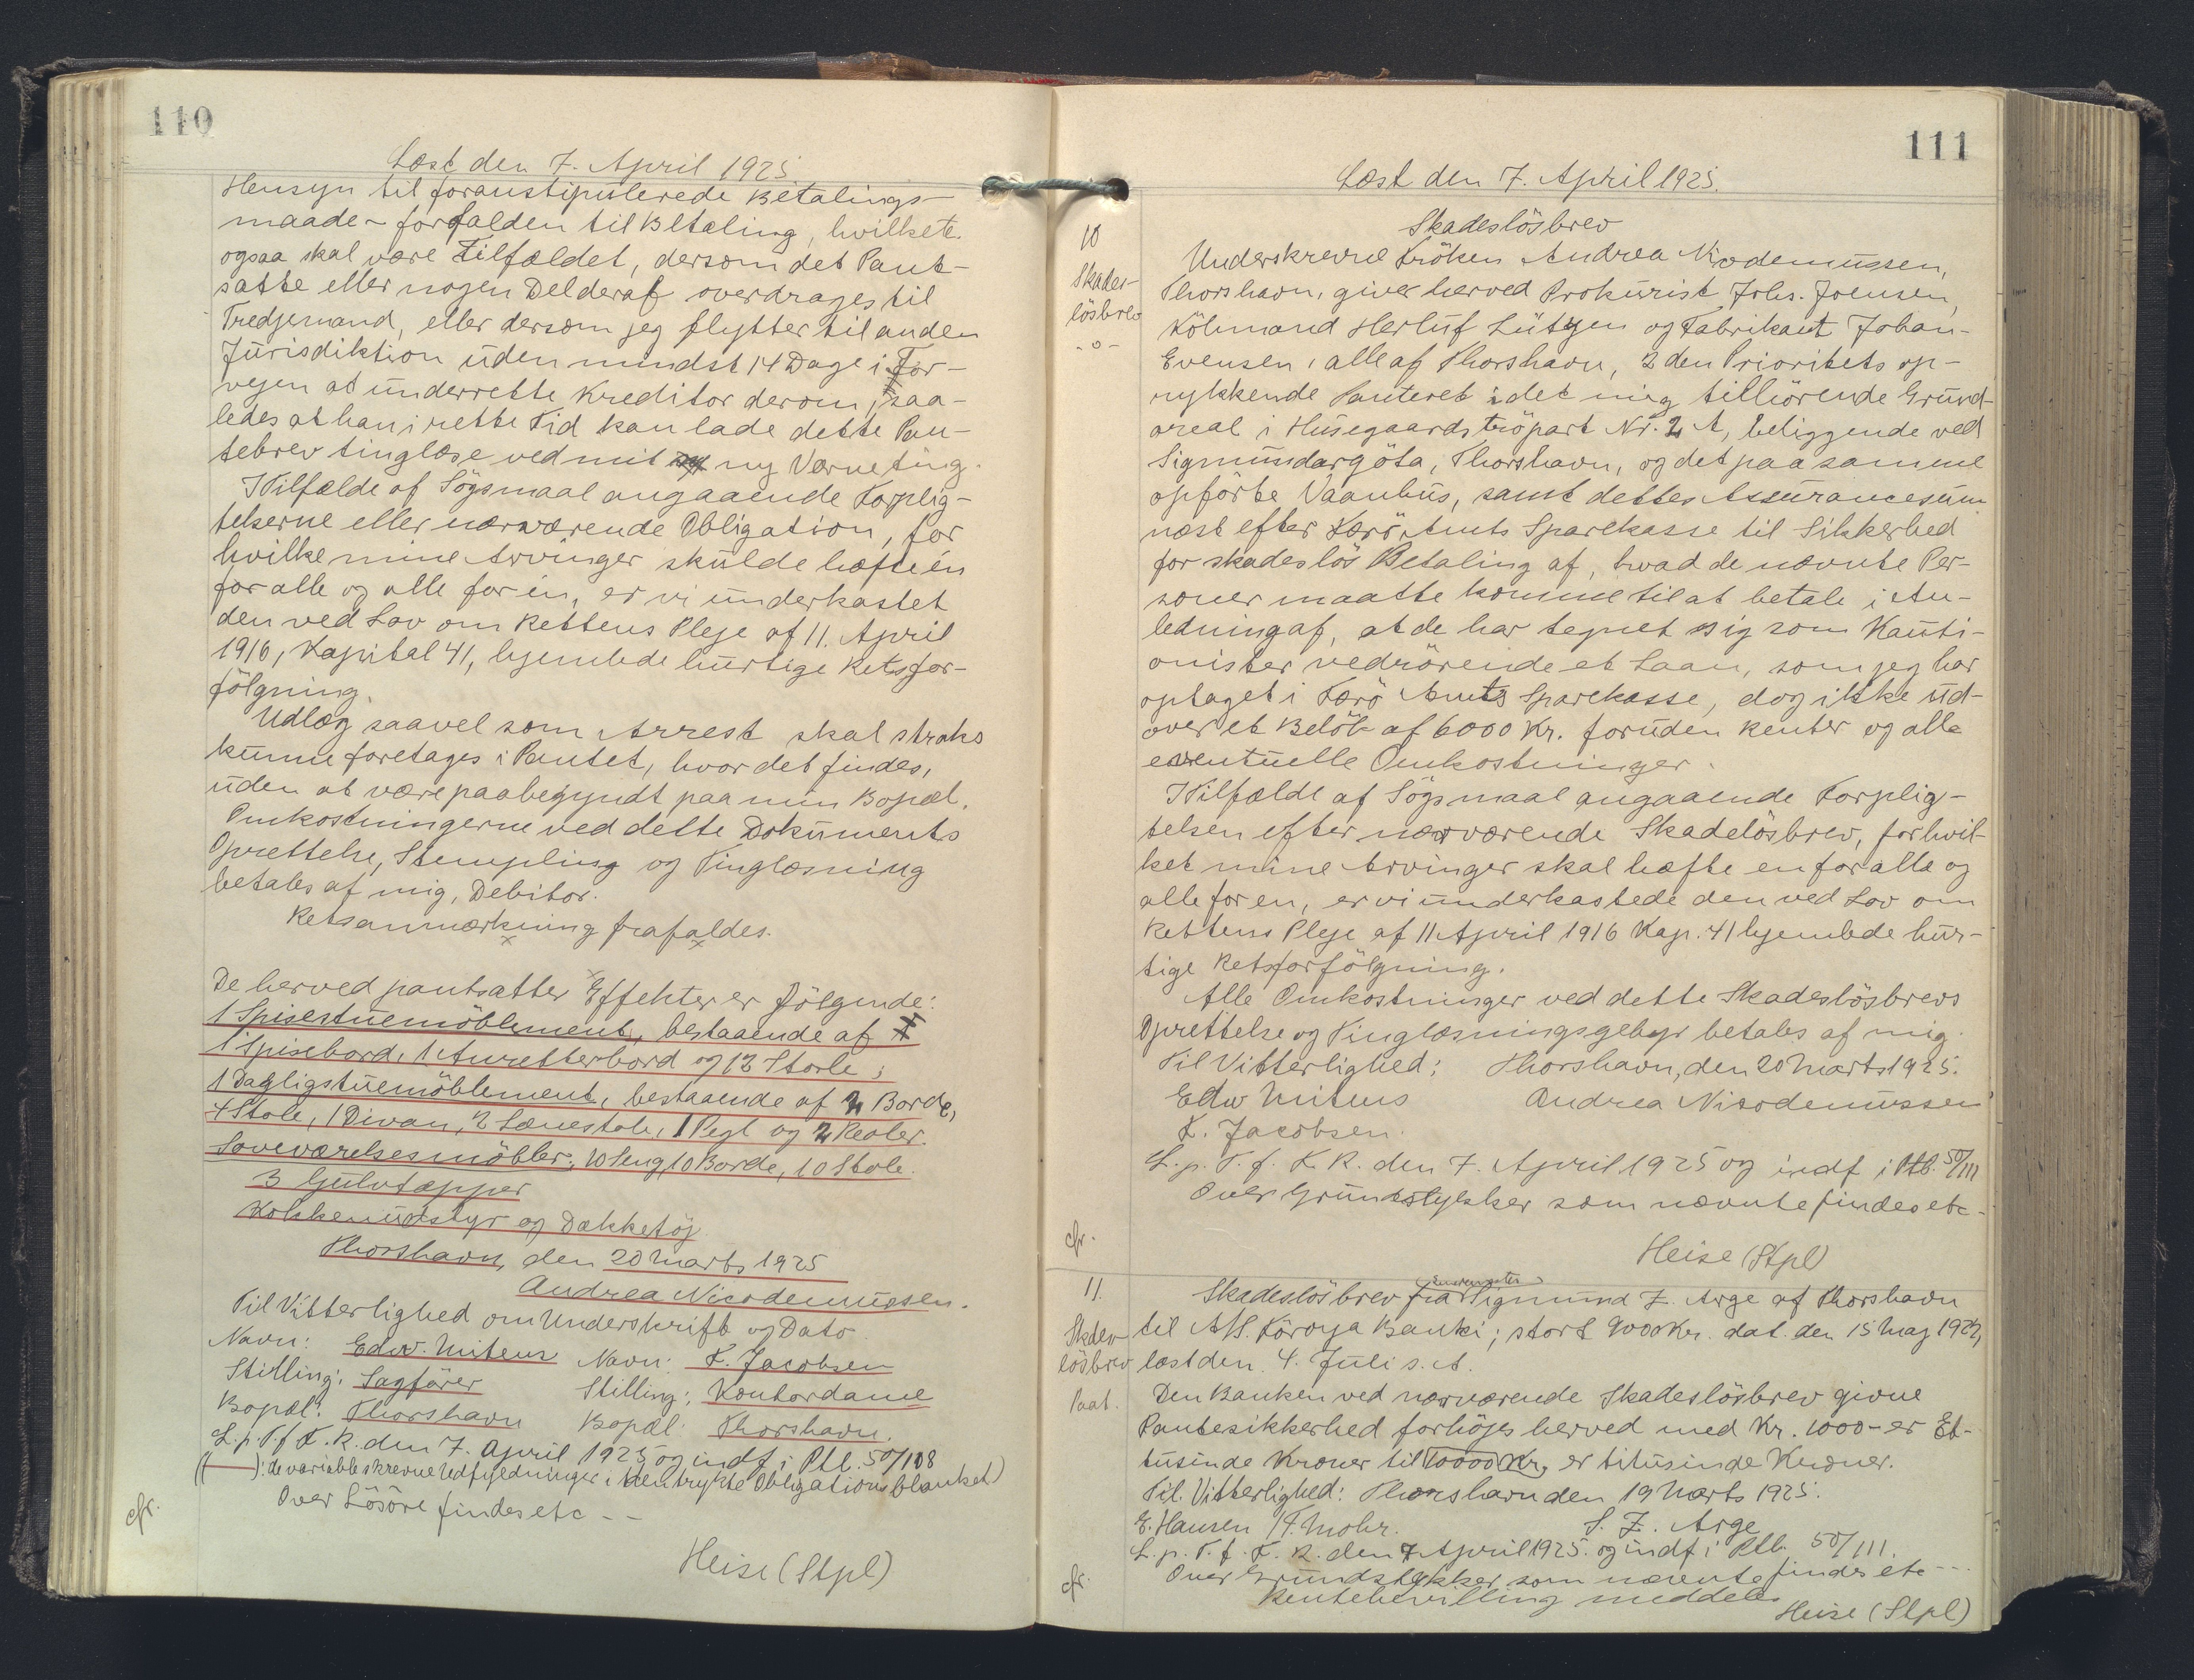 110
Læst den 7. April 1925
Hensyn til foranstipulerede Betalings-
maade - forfalden til Betaling, hvilket
ogsaa skal være Tilfældet, dersom det Pant-
satte eller nogen Del deraf overdrages til
Tredjemand, eller dersom jeg flytter til anden
Jurisdiktion uden mindst 14 Dage i For-
vejen at underrette Kreditor derom, saa-
ledes at han i rette Tid kan lade dette Pan-
tebrev tinglæse ved mit ny Værneting.
I Tilfælde af Søgsmaal angaaende Forplig-
telserne eller nærværende Obligation, for
hvilke mine Arvinger skulde hæfte én
for alle og alle for én, er vi underkastet
den ved Lov om Rettens Pleje af 11. April
1916, Kapital 41, hjemlede hurtige Retsfor-
følgning.
Udlæg saavel som Arrest skal straks
kunne foretages i Pantet, hvor det findes,
uden at være paabegyndt paa min Bopæl.
Omkostningerne ved dette Dokuments
Oprettelse, Stempling og Tinglæsning
betales af mig, Debitor.
Retsanmærkning frafaldes.
De herved pantsatte Effekter er følgende:
1 Spisestuemöblement, bestaaende af
1 Spisebord, 1 Anretterbord og 12 Stole;
1 Dagligstuemöblement, bestaaende af 2 Borde,
4 Stole, 1 Divan, 2 Lænestole, 1 Pejl og 2 Reoler.
Soveværelsesmöbler, 10 Seng, 10 Borde, 10 Stole.
3 Gulvtæpper
Køkkenudstyr og Dækketøj
Thorshavn, den 20 Marts 1925
Andrea Nicodemussen.
Til Vitterlighed om Underskrift og Dato
Navn: Edw. Mitens Navn: K. Jacobsen
Stilling: Sagfører Stilling: Kontordame
Bopæl: Thorshavn Bopæl: Thorshavn.
L. p. T. f. F. R. den 7. April 1925 og indf i Ptb. 50/108
( ): de variable skrevne Udfyldninger i den trykte Obligationsblanket)
cfr. Over Løsøre findes etc - -
Heise (Stpl)
111
Læst den 7. April 1925.
10
Skades-
løsbrev
-o-
Skadesløsbrev
Underskrevne Frøken Andrea Nicodemussen,
Thorshavn, giver herved Prokurist Johs. Joensen,
Köbmand Herluf Lützen og Fabrikant Johan-
Evensen, alle af Thorshavn, 2den Prioritets op-
rykkende Panteret i det mig tilhörende Grund-
areal i Husegaards tröpart Nr. 2 A, beliggende ved
Sigmundargöta, Thorshavn, og det paa samme
opförte Vaanhus, samt dettes Assurancesum
næst efter Færö Amts Sparekasse til Sikkerhed
for skadesløs Betaling af, hvad de nævnte Per-
soner maatte komme til at betale i An-
ledning af, at de har tegnet sig som Kauti-
onister vedrörende et Laan, som jeg har
optaget i Færö Amts Sparekasse, dog ikke ud-
over et Belöb af 6000 Kr. foruden Renter og alle
eventuelle Omkostninger.
I Tilfælde af Søgsmaal angaaende Forplig-
telsen efter nærværende Skadelösbrev, for hvil-
ket mine Arvinger skal hæfte en for alle og
alle for en, er vi underkastede den ved Lov om
Rettens Pleje af 11 April 1916 Kap. 41 hjemlede hur-
tige Retsforfölgning.
Alle Omkostninger ved dette Skadeslösbrevs
Oprettelse og Tinglæsningsgebyr betales af mig.
Til Vitterlighed: Thorshavn, den 20 Marts 1925.
Edw Mitens Andrea Nicodemussen
K. Jacobsen.
L. p. T. f. F. R. den 7. April 1925 og indf i Ptb. 50/111
Over Grundstykker som nævnte findes etc -
cfr.
Heise (Stpl)
11.
Skades-
lösbrev
Paat.
Skadeslösbrev fra Sigmund Z. Arge af Thorshavn
til A/S. Föroya Banki; stort 9000 Kr. dat. den 15 Maj 1922,
læst den 4. Juli s. A.
Den Banken ved nærværende Skadeslösbrev givne
Pantesikkerhed forhöjes herved med Kr. 1000 - er Et-
tusinde Kroner til 10000 Kr, er titusinde Kroner.
Til Vitterlighed: Thorshavn den 19 Marts 1925.
E. Hansen / F. Mohr. S. Z. Arge
L. p. T. f. F. R. den 7 April 1925. og indf i Ptb. 50/111.
cfr. Over Grundstykker som nævnte findes etc - - -
Rentebevilling meddeles
Heise (Stpl)